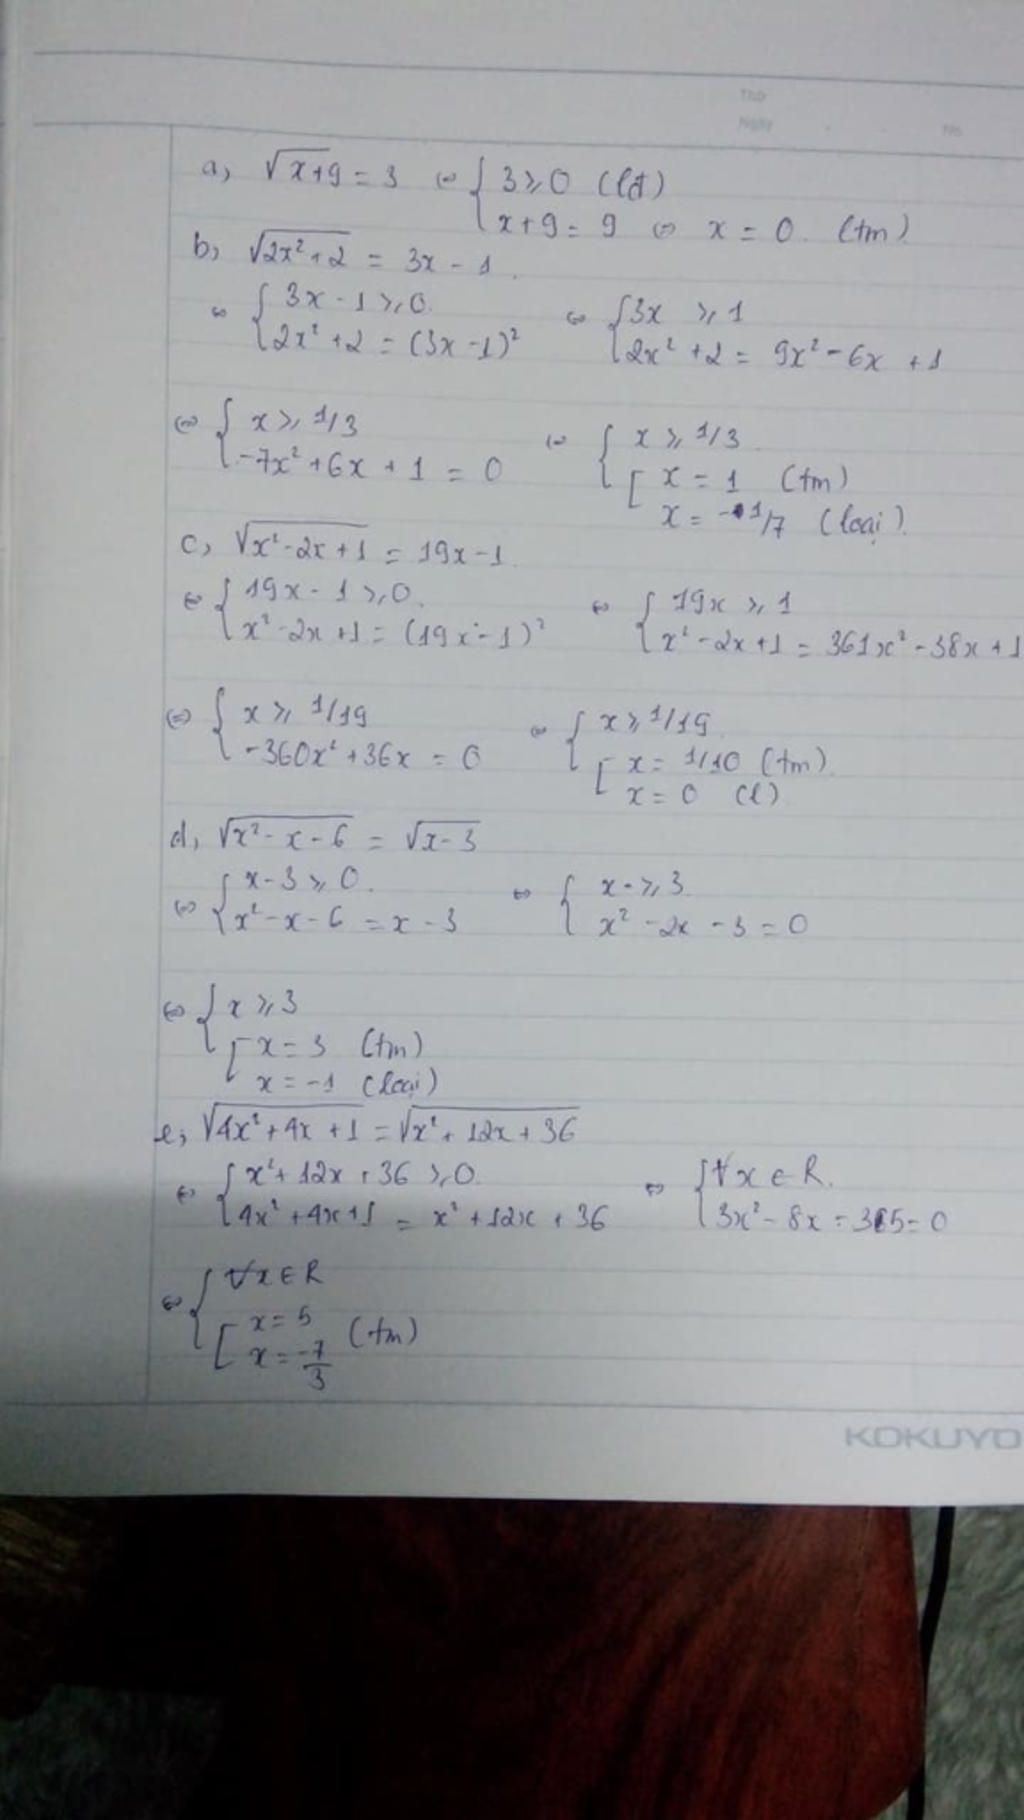 Thứ
Ngày . . No.
a, √x+9 = 3 ⇔ { 3 ⩾ 0 (lđ)
x + 9 = 9 ⇔ x = 0. (tm)
b, √2x² + 2 = 3x - 1.
⇔ { 3x - 1 ⩾ 0. ⇔ { 3x ⩾ 1
2x² + 2 = (3x - 1)² 2x² + 2 = 9x² - 6x + 1
⇔ { x ⩾ 1/3 ⇔ { x ⩾ 1/3
-7x² + 6x + 1 = 0 [ x = 1 (tm)
x = -1/7 (loại).
c, √x² - 2x + 1 = 19x - 1.
⇔ { 19x - 1 ⩾ 0. ⇔ { 19x ⩾ 1
x² - 2x + 1 = (19x - 1)² x² - 2x + 1 = 361x² - 38x + 1
⇔ { x ⩾ 1/19 ⇔ { x ⩾ 1/19
-360x² + 36x = 0 [ x = 1/10 (tm).
x = 0 (l)
d, √x² - x - 6 = √x - 3
⇔ { x - 3 ⩾ 0. ⇔ { x ⩾ 3.
x² - x - 6 = x - 3 x² - 2x - 3 = 0
⇔ { x ⩾ 3
[ x = 3 (tm)
x = -1 (loại)
e, √4x² + 4x + 1 = √x² + 12x + 36
⇔ { x² + 12x + 36 ⩾ 0. ⇔ { ∀x ∈ R.
4x² + 4x + 1 = x² + 12x + 36 3x² - 8x = 35 = 0
⇔ { ∀x ∈ R
[ x = 5 (tm)
x = -7/3
KOKUYO